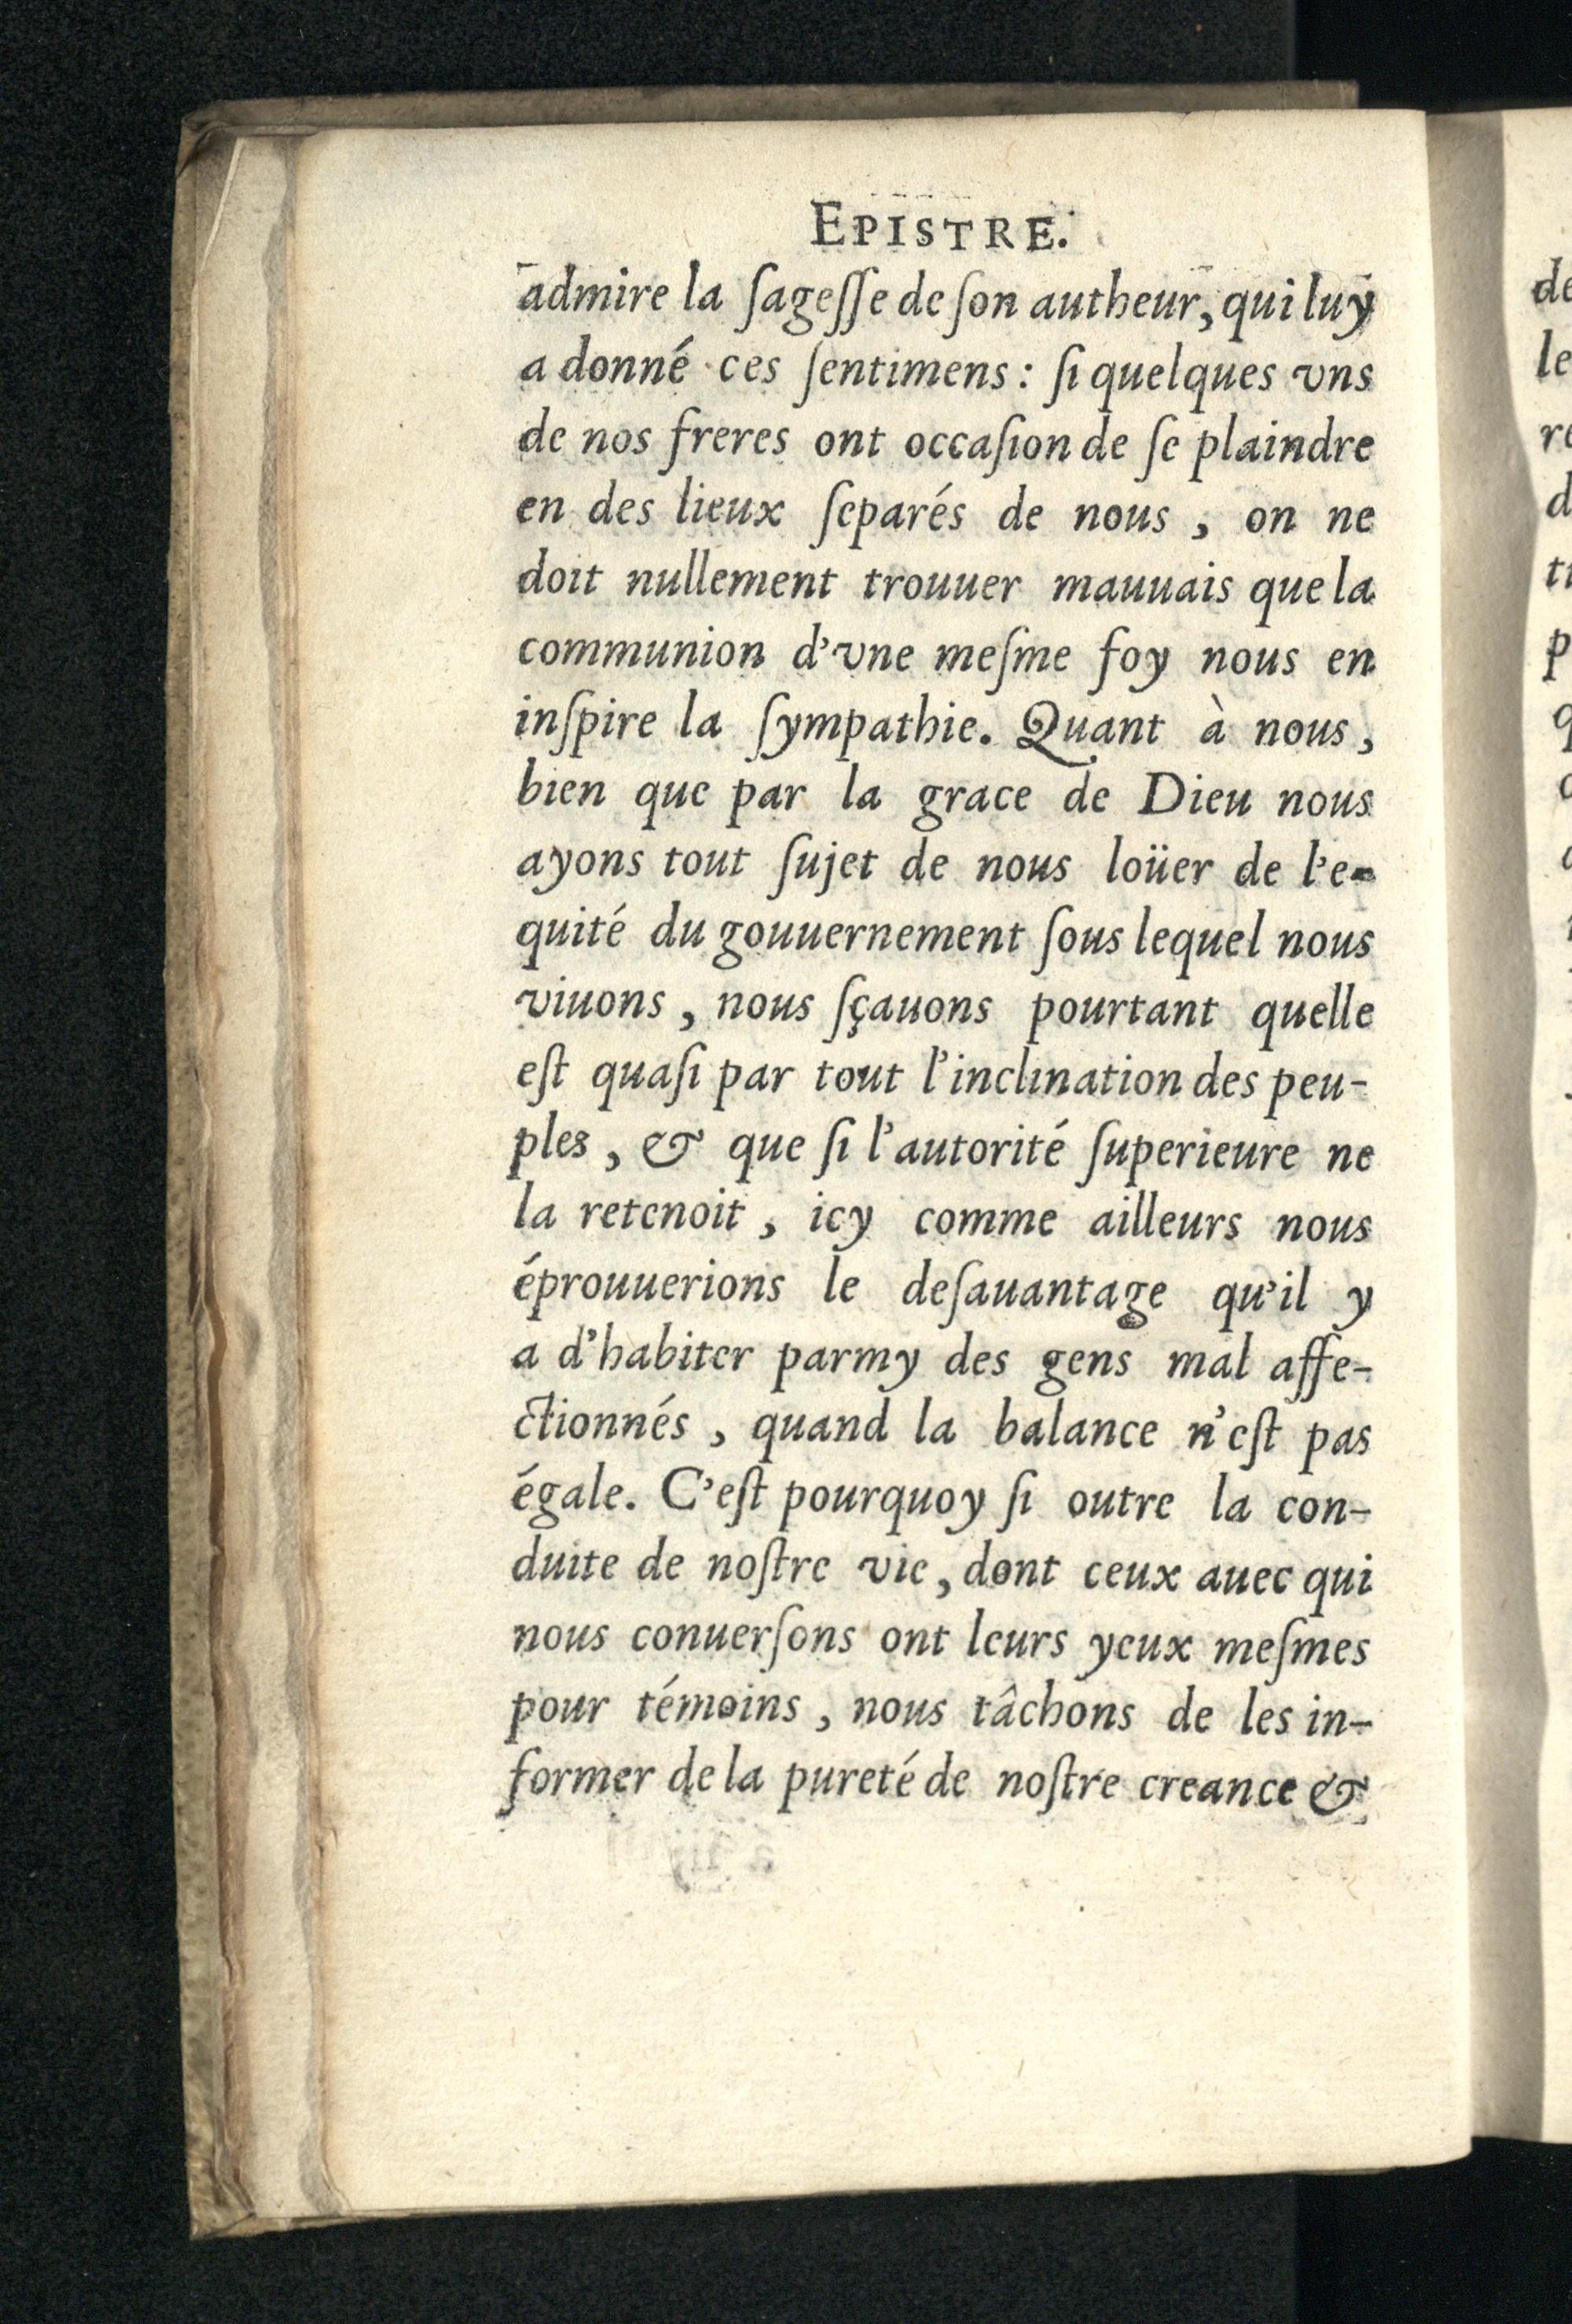 EPISTRE.
admire la ſageſſe de ſon autheur, qui luy
a donné ces ſentimens : ſi quelques vns
de nos freres ont occaſion de ſe plaindre
en des lieux ſeparés de nous , on ne
doit nullement trouuer mauuais que la
communion d'vne meſme foy nous en
inſpire la ſympathie. Quant à nous,
bien que par la grace de Dieu nous
ayons tout ſujet de nous loüer de l'e-
quité du gouuernement ſous lequel nous
viuons , nous ſçauons pourtant quelle
eſt quaſi par tout l'inclination des peu-
ples , & que ſi l'autorité ſuperieure ne
la retenoit , icy comme ailleurs nous
éprouuerions le deſauantage qu'il y
a d'habiter parmy des gens mal affe-
ctionnés , quand la balance n'eſt pas
égale. C'eſt pourquoy ſi outre la con-
duite de noſtre vie, dont ceux auec qui
nous conuerſons ont leurs yeux meſmes
pour témoins , nous tâchons de les in-
former de la pureté de noſtre creance &
de
le